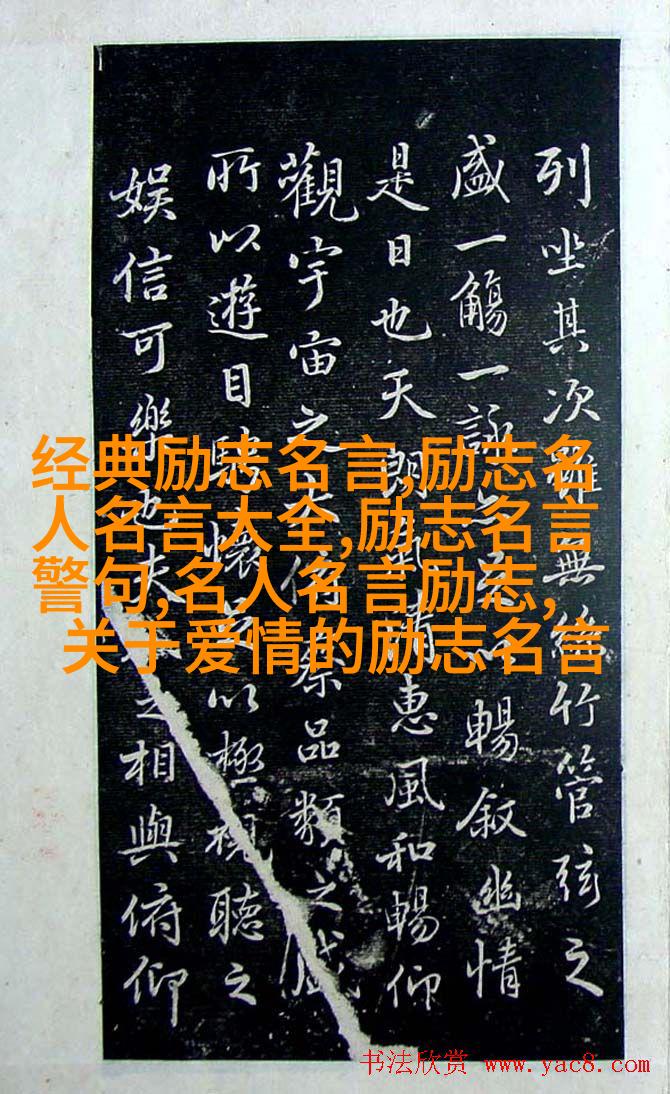 列坐其次雖無絲竹管弦之
盛一觴一詠以暢叙幽情
是日也天朗氣清惠風和暢仰
觀宇宙之大俯察品類之盛
所以遊目騁懷足以極視聽之
娱信可樂也夫之相與俯仰
经典励志名言,励志名
人名言大全,励志名言
警句,名人名言励志,
关于爱情的励志名言
书法欣赏 www.yac8.com